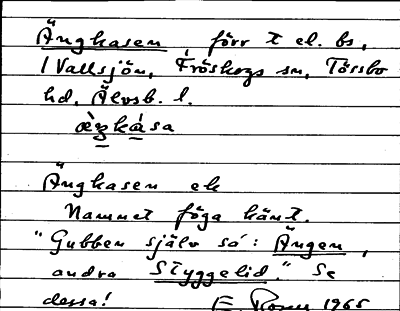 Ängkasen förr t el. bs,
i Vallsjön, Fröskogs sn, Tössbo
hd, Älvsb. l.
æ̀ŋkása
Ängkasen ek
Namnet föga känt.
"Gubben själv sa: Ängen,
andra Styggelid." Se
dessa! E. Rosen 1965